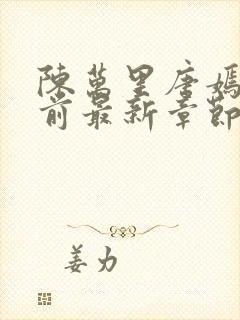 陳萬里唐嫣
前最新章節
姜力